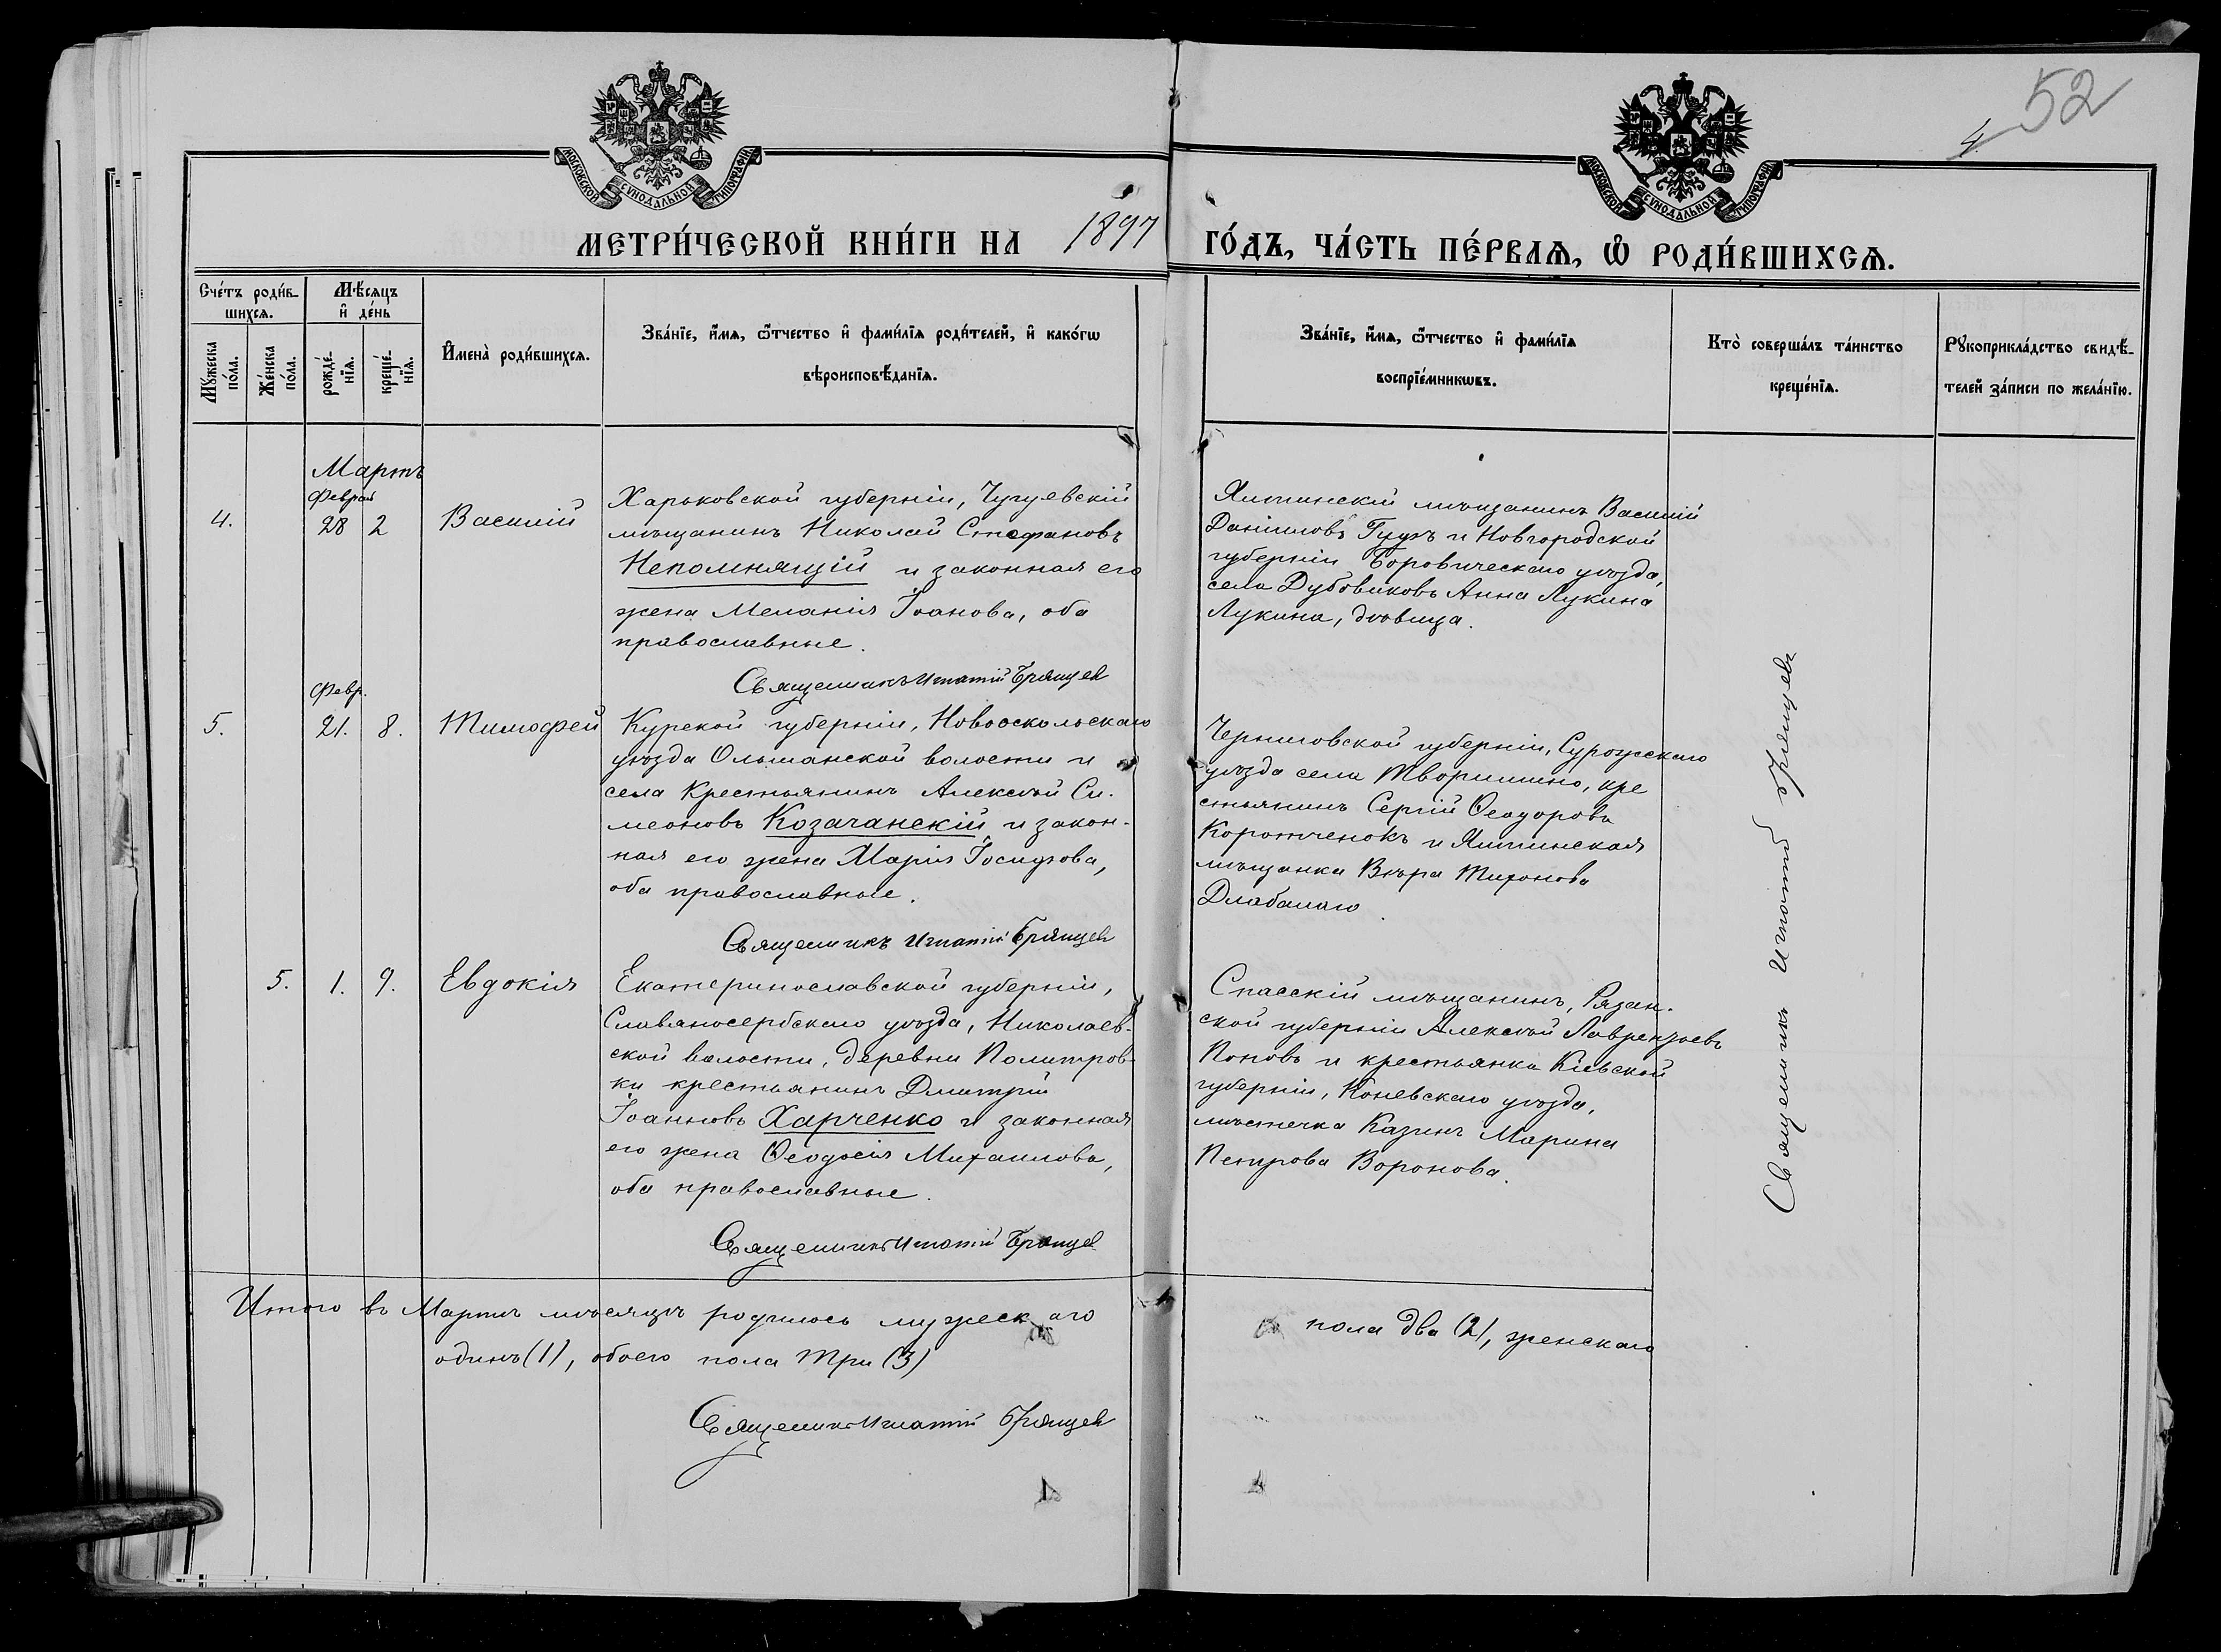 52
4.
МОСКОВСКОЙ СѴНОДАЛЬНОЙ ТИПОГРАФІИ
МОСКОВСКОЙ СѴНОДАЛЬНОЙ ТИПОГРАФІИ
МЕТРИ́ЧЕСКОЙ КНИ́ГИ НА 1897 ГО́ДЪ, ЧА́СТЬ ПЕ́РВАѦ, Ѽ РОДИ́ВШИХСѦ.
Сче́тъ роди́в-
шихсѧ.
Мѣ́сѧцъ
и҆ де́нь
Мꙋ́жеска
по́ла.
Же́нска
по́ла.
рожде́-
нїѧ.
креще́-
нїѧ.
И҆мена̀ роди́вшихсѧ.
Зва́нїе, и҆́мѧ, ѻ҆́тчество и҆ фами́лїѧ роди́телей, и҆ како́гѡ
вѣроисповѣ́данїѧ.
Зва́нїе, и҆́мѧ, ѻ҆́тчество и҆ фами́лїѧ
воспрїе́мникѡвъ.
Кто̀ соверша́лъ та́инство
креще́нїѧ.
Рꙋкоприкла́дство свидѣ́-
телей за́писи по жела́нїю.
Мартъ
Феврал
4. 28 2 Василій
Харьковской губерніи, Чугуевскій
мѣщанинъ Николай Стефановъ
Непомнящій и законная его
жена Меланія Іоанова, оба
православные.
Священникъ Игнатій Брянцев
Ялтинскій мѣщанинъ Василій
Даніиловъ Гузь и Новгородской
губерніи Боровическаго уѣзда,
села Дубовиковъ Анна Лукина
Лукина, дѣвица.
Февр.
5. 21. 8. Тимофей
Курской губерніи, Новооскольскаго
уѣзда Ольшанской волости и
села крестьянинъ Алексѣй Си-
меоновъ Козачанскій и закон-
ная его жена Марія Іосифова,
оба православные.
Священникъ Игнатій Брянцев
Черниговской губерніи, Суражскаго
уѣзда села Творишино, кре
стьянинъ Сергій Ѳеодоровъ
Коротченокъ и Ялтинская
мѣщанка Вѣра Тихонова
5. 1. 9. Евдокія
Екатеринославской губерніи,
Славяносербскаго уѣзда, Николаев-
ской волости, деревни Политров-
ки крестьянинъ Дмитрій
Іоанновъ Харченко и законная
его жена Ѳеодосія Михаилова,
оба православные.
Священникъ Игнатій Брянцев
Спасскій мѣщанинъ, Рязан-
ской губерніи Алексѣй Лаврентьевъ
Поповъ и крестьянка Кіевской
губерніи, Каневскаго уѣзда,
мѣстечка Казинъ Марина
Петрова Воронова.
Священникъ Игнатій Брянцевъ
Итого въ Мартѣ мѣсяцѣ родилось мужескаго пола два (2), женскаго
одинъ (1), обоего пола три (3)
Священникъ Игнатій Брянцев